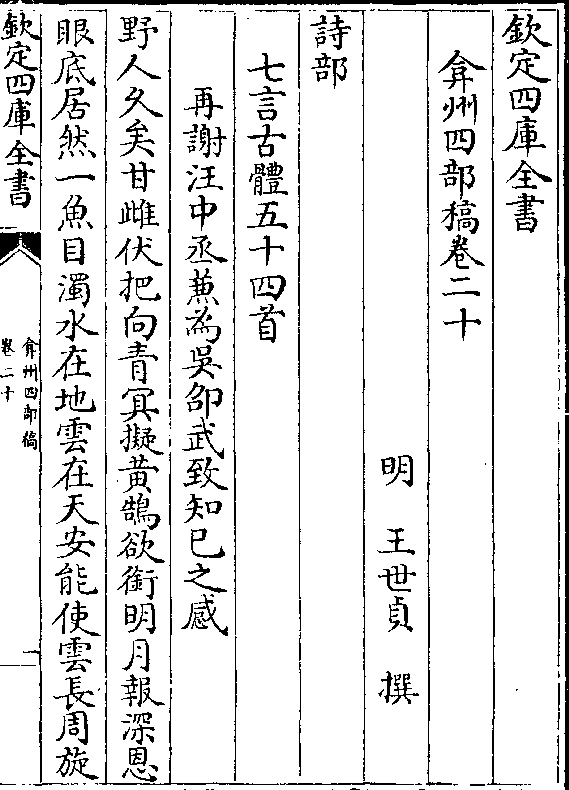 欽定四庫全書
弇州四部稿卷二十
明 王世貞 撰
詩部
七言古體五十四首
再謝汪中丞蒹為吳邵武致知已之感
野人久矣甘雌伏把向青冥擬黃鵠欲銜明月報深恩
眼底居然一魚目濁水在地雲在天安能使雲長周旋
欽定四庫全書
弇州四部稿
卷二十
一